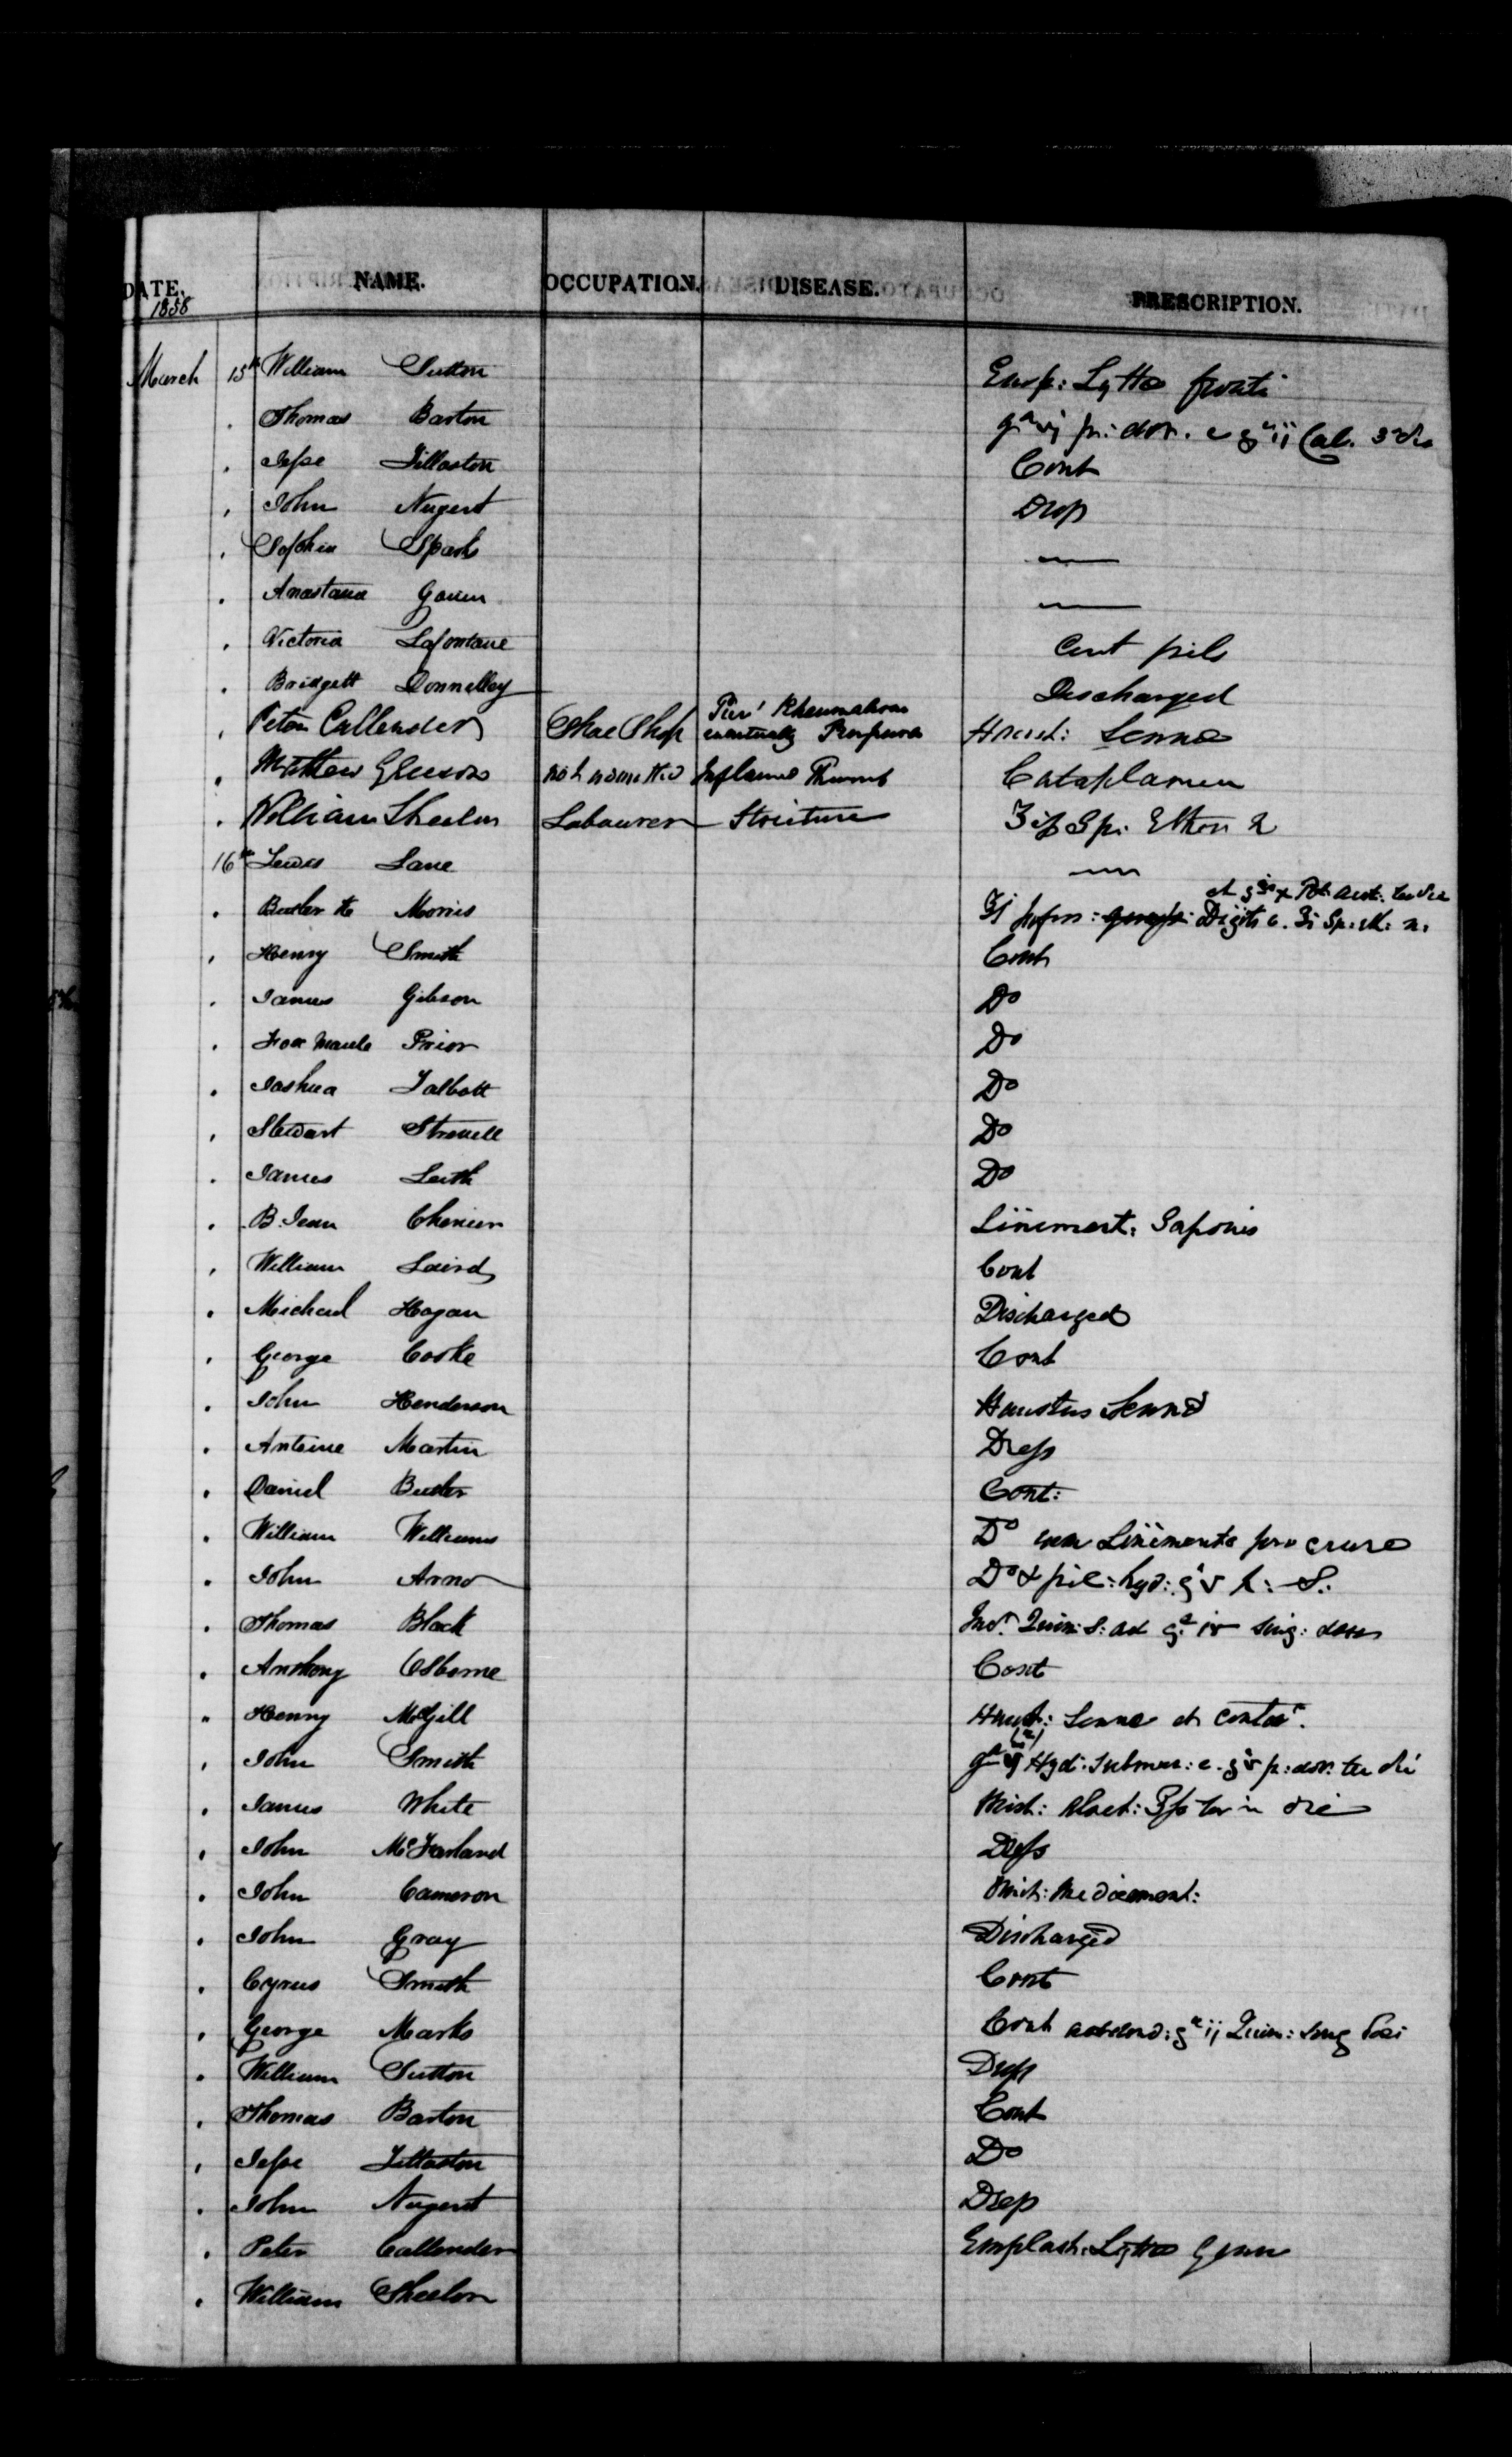 DATE. NAME. OCCUPATION. DISEASE. PRESCRIPTION.
1858
March 15th William Sutton Emp: Lyttae fronti
Thomas Barton grvj p: dov. c grij Cal. 3 die
Jesse Tillaston Cont
John Nugent Drop
Sophia Sparks —
Anastasia —
Victoria Lafontaine Cont pils
Bridgett Donnelley Discharged
Peter Callender Shoe Shop Rheumatism eventually Purpura Haust: Sennae
Matthew Gleeson Inflamed Thumb Cataplasma
William Sheelon Labourer Stricture Spi. Ether N
16th Lewis Lane —
Butler Morris et Pot. Acet. ter die
Infus: Digit: c. Sp: Æth: n.
Henry Smith Cont
James Gibson Do
Fox Maule Prior Do
Joshua Talbott Do
Stewart Do
James Leith Do
B. Jean Chenier Liniment: Saponis
William Laird Cont
Michael Hogan Discharged
George Cooke Cont
John Henderson Haustus Senna
Antoine Martin Dress
Daniel Butler Cont:
William Williams Do cum Linimento pro crure
John Arno Do & pil: hyd: gr v h: S.
Thomas Black Quin: S: ad gr iv sing: dos
Anthony Osborne Cont
Henry McGill Haust: Senna et conter.
John Smith Hyd: Submur: c. gr v p: dov: ter die
James White Mist: ter in die
John McFarland Dress
John Cameron Mist: Medicament:
John Gray Discharged
Cyrus Smith Cont
George Marks Cont addend: gr ij Quin: sing Dosi
William Sutton Dress
Thomas Barton Cont
Jesse Tillaston Do
John Nugent Drop
Peter Callender Emplast: Lyttae Genu
William Sheelon